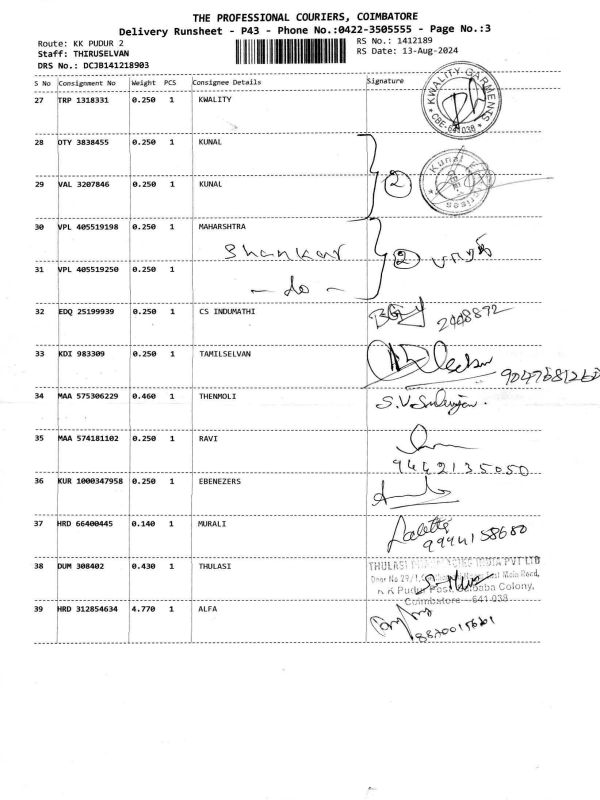 THE PROFESSIONAL COURIERS, COIMBATORE
Delivery Runsheet - P43 - Phone No.:0422-3505555 - Page No.:3
Route: KK PUDUR 2
RS No.: 1412189
Staff: THIRUSELVAN
RS Date: 13-Aug-2024
DRS No.: DCJB141218903
S No Consignment No Weight PCS Consignee Details Signature
27 TRP 1318331 0.250 1 KWALITY
KWALITY GARMENTS
* CBE-641038 *
28 OTY 3838455 0.250 1 KUNAL
29 VAL 3207846 0.250 1 KUNAL
2
Kunal
30 VPL 405519198 0.250 1 MAHARSHTRA
Shankar
2
31 VPL 405519250 0.250 1
- do -
32 EDQ 25199939 0.250 1 CS INDUMATHI
33 KDI 983309 0.250 1 TAMILSELVAN
9047681260
34 MAA 575306229 0.460 1 THENMOLI
35 MAA 574181102 0.250 1 RAVI
9442135050
36 KUR 1000347958 0.250 1 EBENEZERS
37 HRD 66400445 0.140 1 MURALI
9994158680
38 DUM 308402 0.430 1 THULASI
THULASI INDIA PVT LTD
Door No 29/1, East Main Road,
K.K Pudur Post, Saibaba Colony,
Coimbatore - 641 038
39 HRD 312854634 4.770 1 ALFA